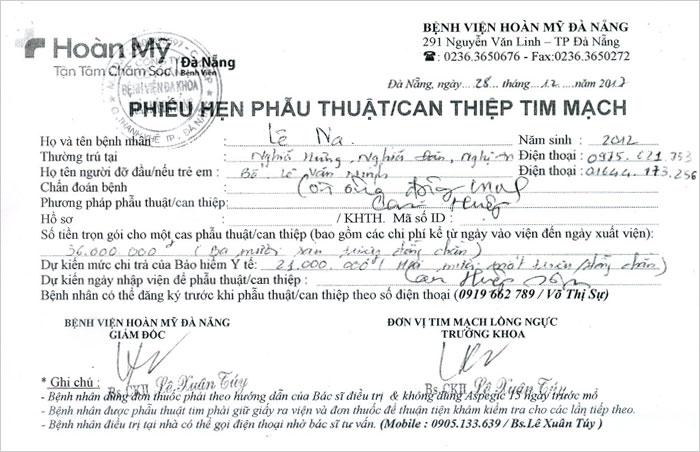 Hoàn Mỹ
Đà Nẵng
Tận Tâm Chăm Sóc Bệnh Viện
BỆNH VIỆN ĐA KHOA
BỆNH VIỆN HOÀN MỸ ĐÀ NẴNG
291 Nguyễn Văn Linh – TP Đà Nẵng
☎: 0236.3650676 - Fax:0236.3650272
Đà Nẵng, ngày... 28 ....tháng... 12 ....năm 2017
PHIẾU HẸN PHẪU THUẬT/CAN THIỆP TIM MẠCH
Họ và tên bệnh nhân : Lê Na. Năm sinh : 2012
Thường trú tại : Nghĩa Hưng, Nghĩa Đàn, Nghệ An Điện thoại : 0975.621.753
Họ tên người đỡ đầu/nếu trẻ em : Bố. Lê Văn Điện thoại : 01644.173.256
Chẩn đoán bệnh : Còn ống động mạch
Phương pháp phẫu thuật/can thiệp: Can thiệp
Hồ sơ : / KHTH. Mã số ID :
Số tiền trọn gói cho một cas phẫu thuật/can thiệp (bao gồm các chi phí kể từ ngày vào viện đến ngày xuất viện):
36.000.000đ ( Ba mươi sáu triệu đồng chẵn )
Dự kiến mức chi trả của Bảo hiểm Y tế: 21.000.000đ ( Hai mươi mốt triệu đồng chẵn)
Dự kiến ngày nhập viện để phẫu thuật/can thiệp : Can thiệp sớm
Bệnh nhân có thể đăng ký trước khi phẫu thuật/can thiệp theo số điện thoại (0919 662 789 / Võ Thị Sự)
BỆNH VIỆN HOÀN MỸ ĐÀ NẴNG
GIÁM ĐỐC
ĐƠN VỊ TIM MẠCH LỒNG NGỰC
TRƯỞNG KHOA
Bs.CKII Lê Xuân Túy
Bs.CKII Lê Xuân Túy
* Ghi chú :
- Bệnh nhân dùng đơn thuốc phải theo hướng dẫn của Bác sĩ điều trị & không dùng Aspegic 15 ngày trước mổ
- Bệnh nhân được phẫu thuật tim phải giữ giấy ra viện và đơn thuốc để thuận tiện khám kiểm tra cho các lần tiếp theo.
- Bệnh nhân điều trị tại nhà có thể gọi điện thoại nhờ bác sĩ tư vấn. (Mobile : 0905.133.639 / Bs.Lê Xuân Túy )